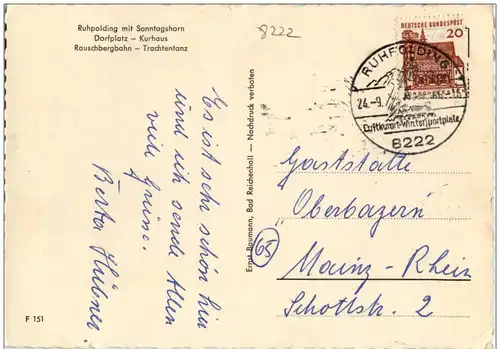 Ruhpolding mit Sonntagshorn
Dorfplatz – Kurhaus
Rauschbergbahn – Trachtentanz
8222
DEUTSCHE BUNDESPOST
20
RUHPOLDING
24.-9.
-16
Luftkurort-Wintersportplatz
8222
Es ist sehr schön hier
und ich sende Allen
viele Grüsse.
Berta Hübner.
Ernst Baumann, Bad Reichenhall – Nachdruck verboten
65
Gaststätte
Oberbayern
Mainz-Rhein
Schottstr. 2
F 151